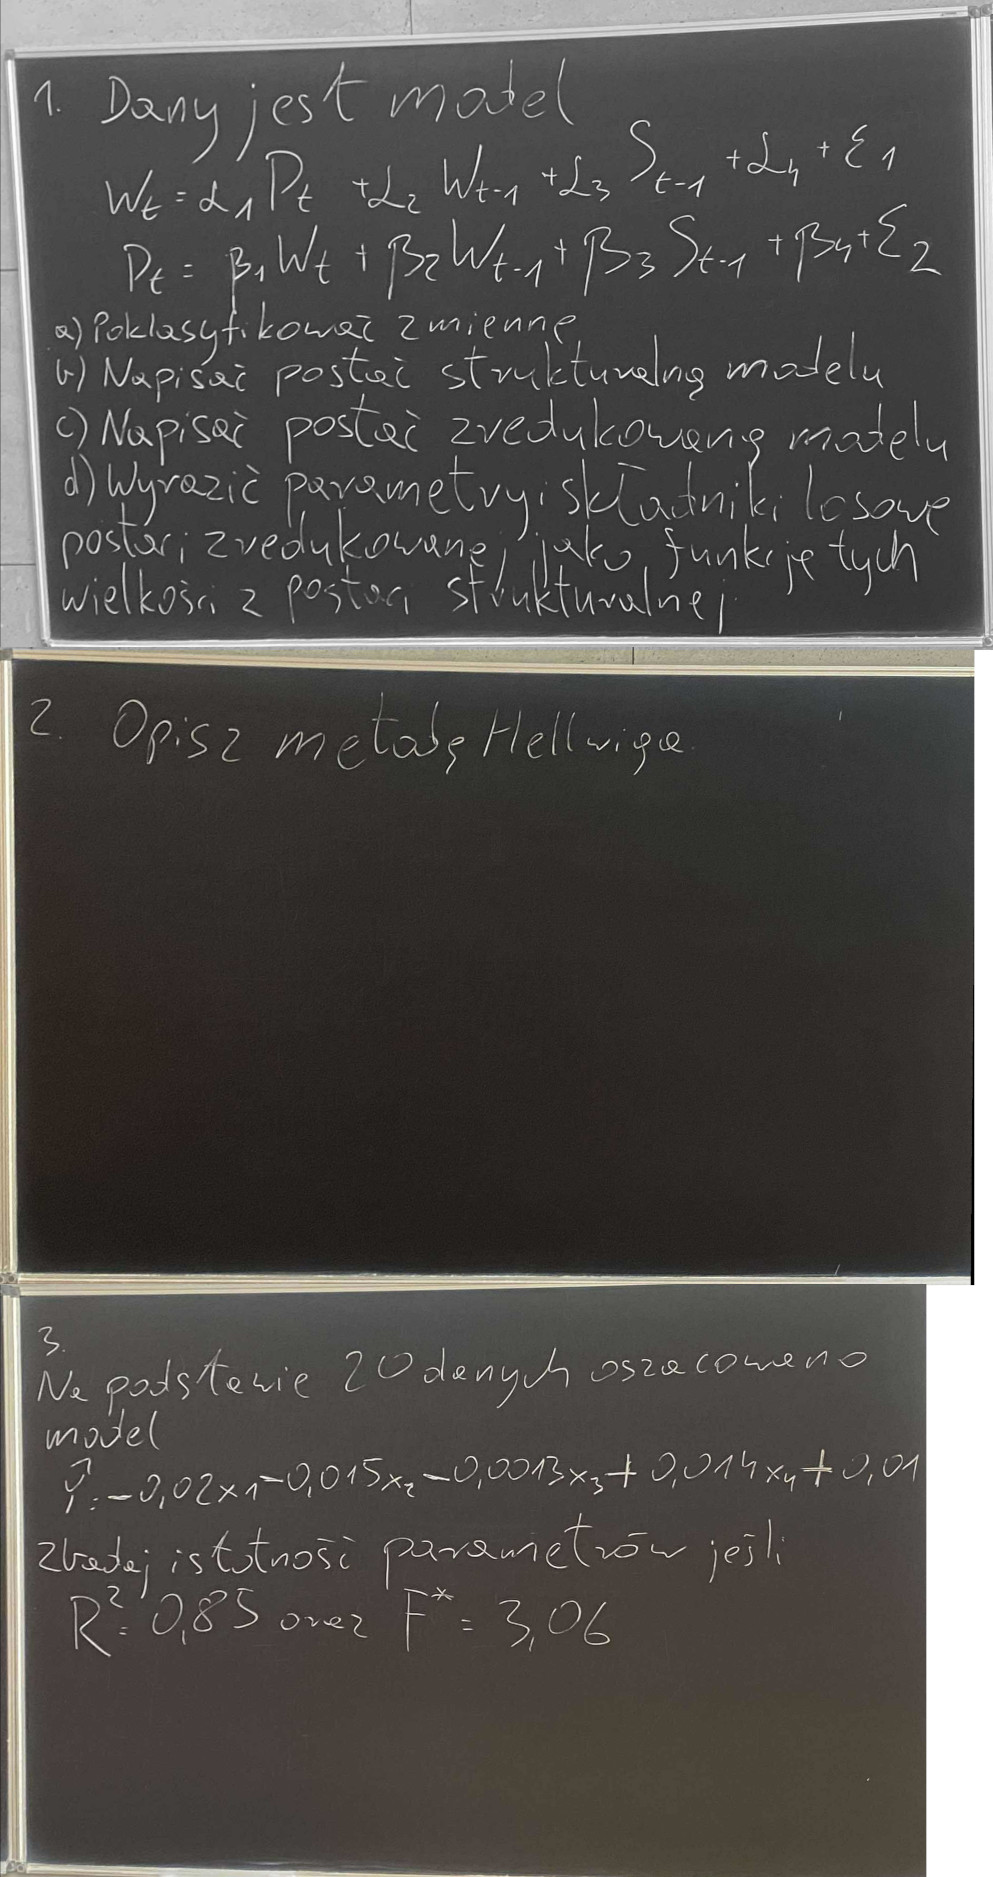 1. Dany jest model
Wt = α1 Pt + α2 Wt-1 + α3 St-1 + α4 + ε1
Pt = β1 Wt + β2 Wt-1 + β3 St-1 + β4 + ε2
a) Poklasyfikować zmienne
b) Napisać postać strukturalną modelu
c) Napisać postać zredukowaną modelu
d) Wyrazić parametry i składniki losowe
postaci zredukowanej jako funkcje tych
wielkości z postaci strukturalnej.
2. Opisz metodę Hellwiga
3.
Na podstawie 20 danych oszacowano
model
Ŷ = -0,02x1 - 0,015x2 - 0,0013x3 + 0,014x4 + 0,01
Zbadaj istotność parametrów jeśli
R² = 0,85 oraz F* = 3,06